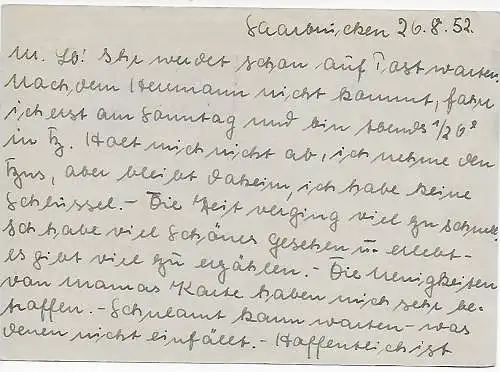 Saarbrücken 26.8.52.
M. Lb! Ihr werdet schon auf Post warten.
Nachdem Hermann nicht kommt, fahre
ich erst am Sonntag und bin abends 1/2 6h
in Fz. Holt mich nicht ab, ich nehme den
aber bleibt daheim, ich habe keine
Schlüssel. – Die Zeit verging viel zu schnell.
Ich habe viel Schönes gesehen u. erlebt –
es gibt viel zu erzählen. – Die Neuigkeiten
von Mamas Karte haben mich sehr be-
troffen. – Schulamt kann warten – was
denen nicht einfällt. – Hoffentlich ist